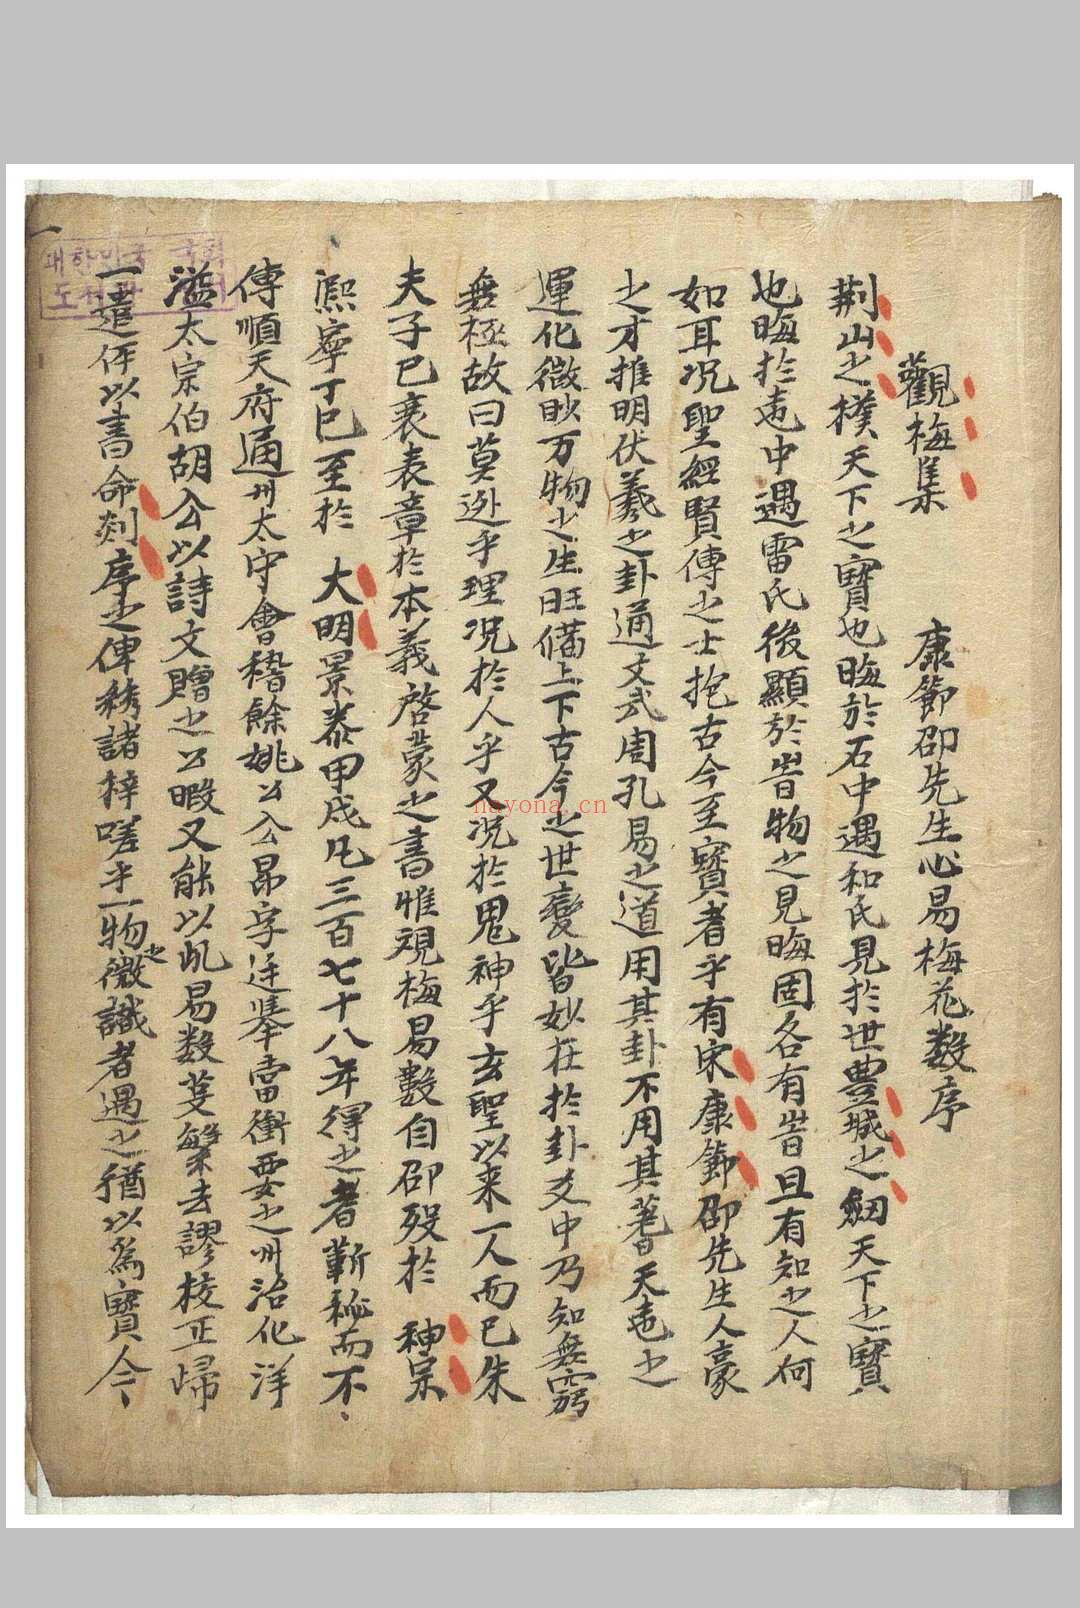 觀梅集 康節邵先生心易梅花数序
荆山之樸天下之寶也晦於石中遇和氏見於世豊城之劔天下之寶
也晦於壺中遇雷氏後顯於旹物之見晦固各有旹且有知之人何
如耳况聖經賢傳之士抱古今至寶者乎有宋康節邵先生人豪
之才推明伏羲之卦通文武周孔易之道用其卦不用其蓍天壺之
運化微眇万物之生旺備上下古今之世變皆妙在於卦爻中乃知無窮
無極故曰莫逊乎理况於人乎又况於鬼神乎玄聖以来一人而已朱
夫子已衰表章於本義啓蒙之書惟視梅易數自邵殁於 神宗
熙寧丁巳至於 大明景泰甲戌凡三百七十八年得之者蕲秘而不
傳順天府通州太守會稽餘姚公公昂字廷舉當衝要之州治化洋
溢太宗伯胡公以詩文贈之公暇又能以此易数芟繁去謬校正歸
一遣伻以書命剡序之俾綉諸梓嗟乎一物之微識者遇之猶以爲寶今
대한민국 국회
도서관
nayona.cn